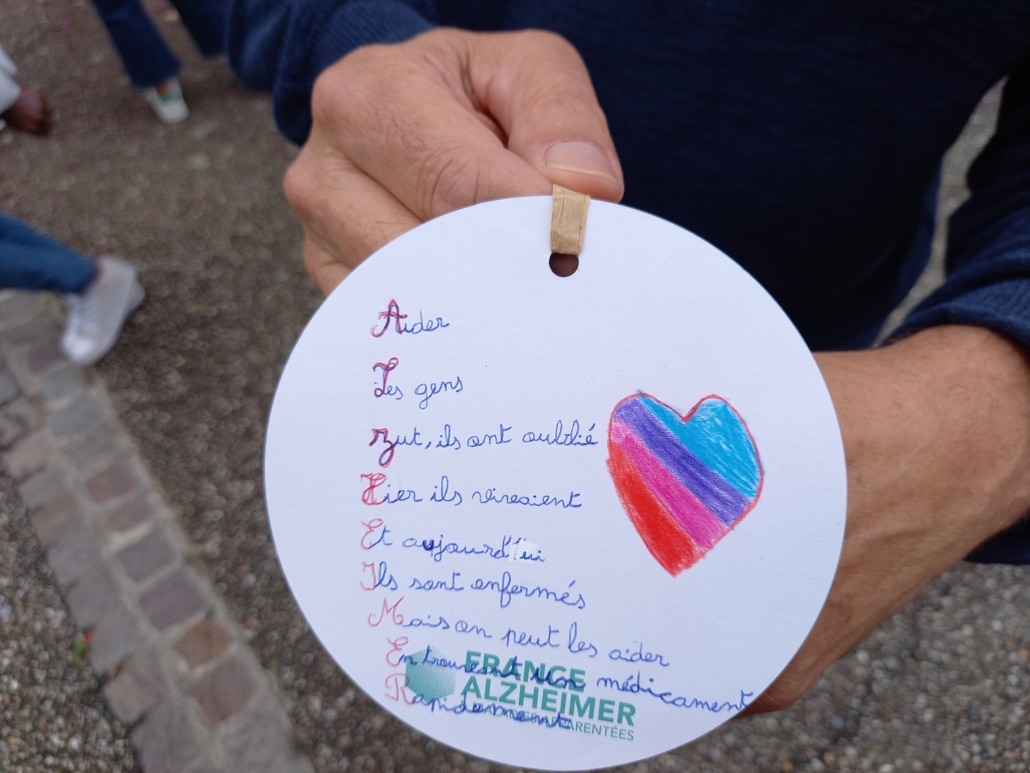 Aider
Les gens
Zut, ils ont oublié
Hier ils vivaient
Et aujourd'ui
Ils sont enfermés
Mais on peut les aider
En trouvant un médicament
Rapidement
FRANCE
ALZHEIMER